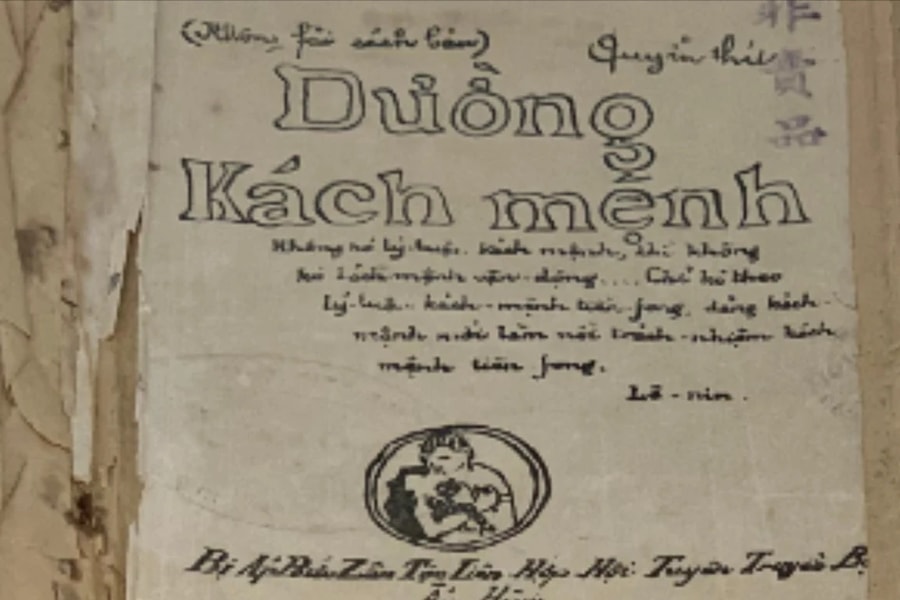 (Không fải sách bán)
Quyển thứ
非賣品
Dường
Kách mệnh
Không có lý-luận kách mệnh, thì không
có kách mệnh vận-động.... Chỉ có theo
lý-luận kách-mệnh tiền fong, đảng kách
mệnh mới làm nổi trách-nhiệm kách
mệnh tiền fong.
Lê-nin.
Bị Áp Bức Zân Tộc Liên Hợp Hội Tuyên Truyền